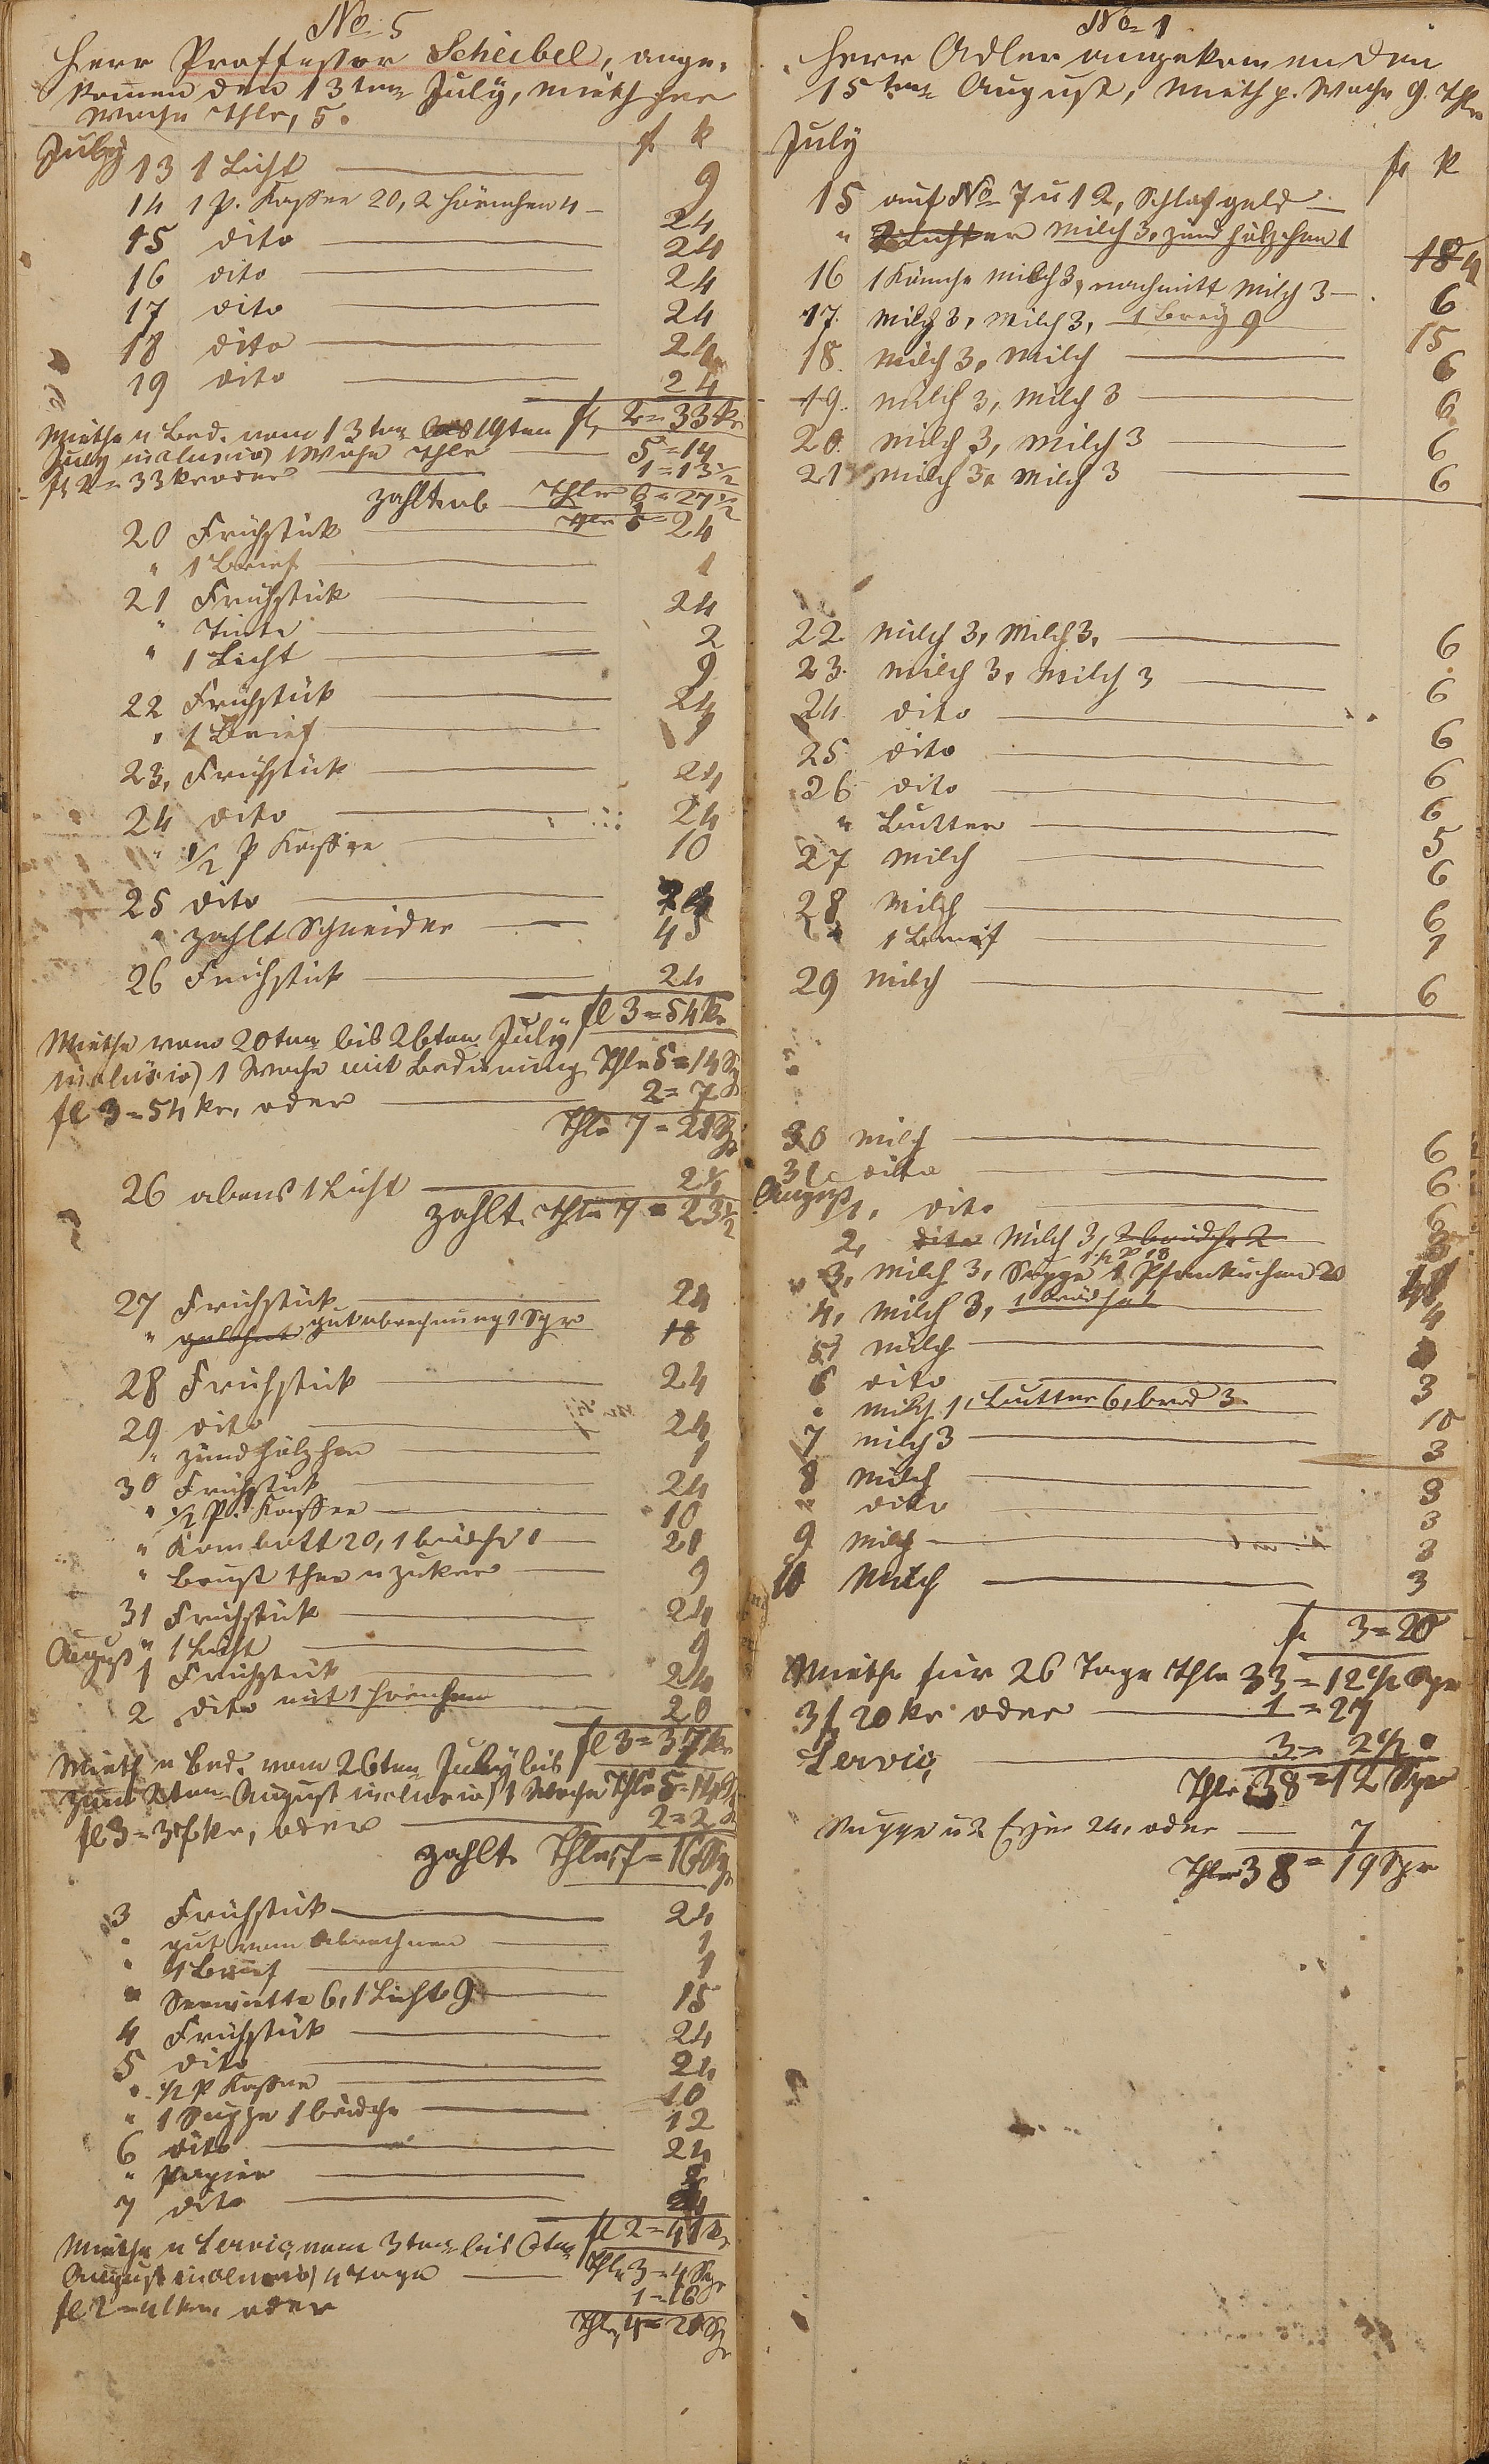 No 5
Herr Proffessor Scheibel, ange-
komen den 13ten July, mieth per
Woche Thlr, 5.
July fl k
13 1 Licht 9
14 1 p. Kaffee 20, 2 Hörnchen 4 24
15 dito 24
16 dito 24
17 dito 24
18 dito 24
19 dito 24
fl 2=33 kr
Miethe u Bed. vom 13ten bis 19ten
July inclusive) 1 Woche Thlr 5=14
fl 2=33 kr oder 1=13½
zahlt ab Thlr 6=27½
20 Frühstük 24
" 1 Brief 1
21 Frühstük 24
" Tinte 2
" 1 Licht 9
22 Frühstük 24
" 1 Brief 1
23, Frühstük 24
24 dito 24
" ½ P Kaffee 10
25 dito 24
" zahlt Schneider 45
26 Frühstük 24
fl 3=54 kr
Miethe vom 20ten bis 26ten July
inclusive) 1 Woche mit Bedinung Thlr 5=14 Sg
fl 3=54 kr, oder 2=7 S
Thlr 7=21 Sg
26 abens 1 Licht 2½
zahlt Thlr 7=23½
27 Frühstük 24
" gut abrechnung 1 Sgr 18
28 Frühstük 24
29 dito 24
" zündhölzchen 1
30 Frühstük 24
" ½ P. Kaffee 10
" Kombott 20, 1 brödch 1 21
" Brust thee u Zuker 9
31 Frühstük 24
August " 1 Licht 9
1 Frühstük 24
2 dito mit 1 Hörnchen 20
fl 3=37 kr
Mieth u Bed. vom 26ten July bis
zum 2ten August inclusive) 1 Woche Thlr 5=14 Sg
fl 3=37 kr, oder 2=2 S
zahlt Thlr, 7=16 Sg
3 Frühstük 24
" gut vom Abrechnen 1
" 1 Brief 1
" Serviette 6, 1 Licht 9 15
4 Frühstük 24
5 dito 24
" ½ P Kaffee 10
" 1 Suppe 1 brödche 12
6 dito 24
" Papier
7 dito 24
fl 2=41 kr
Miethe u Servic, vom 3ten bis 6ten
August inclusive) 4 Tage Thlr 3=4 Sgr
fl 2=41 kr, oder 1=16
Thlr, 4=20 Sg
No 1
Herr Adler angekommen den
15ten August, Mieth p. Woche 9. Thlr
July
fl k
15 auf No 7 u 12, Schlafgeld
" Milch 3, zündhölzchen 1 4
16 1 Känche Milch 3, nachmitt Milch 3 6
17. Milch 3, Milch 3, 1 Brey 9 15
18. Milch 3, Milch 6
19. Milch 3, Milch 3 6
20. Milch 3, Milch 3 6
21 Milch 3, Milch 3 6
22. Milch 3, Milch 3, 6
23. Milch 3, Milch 3 6
24. dito 6
25 dito 6
26 dito 6
" Butter 5
27 Milch 6
28 Milch 6
" 1 Brief 1
29 Milch 6
30 Milch 6
31 dito 6
August
1, dito 6
2, dito Milch 3, 2 brödche 2 3
3, Milch 3, Suppe 1 Pfankuchen 20
4, Milch 3, 1 brödche 1 4
5 Milch
6 dito 3
" Milch 1, Butter 6, brod 3 10
7 Milch 3 3
8 Milch 3
" dito 3
9 Milch 3
10 Milch 3
fl 3=20
Miethe für 26 Tage Thlr 33=12½ Sgr
3 fl 20 kr oder 1=27
Servic, 3=2½
Thlr 38=12 Sgr
Suppe u 2 Eyer 24, oder 7
Thlr 38=19 Sgr